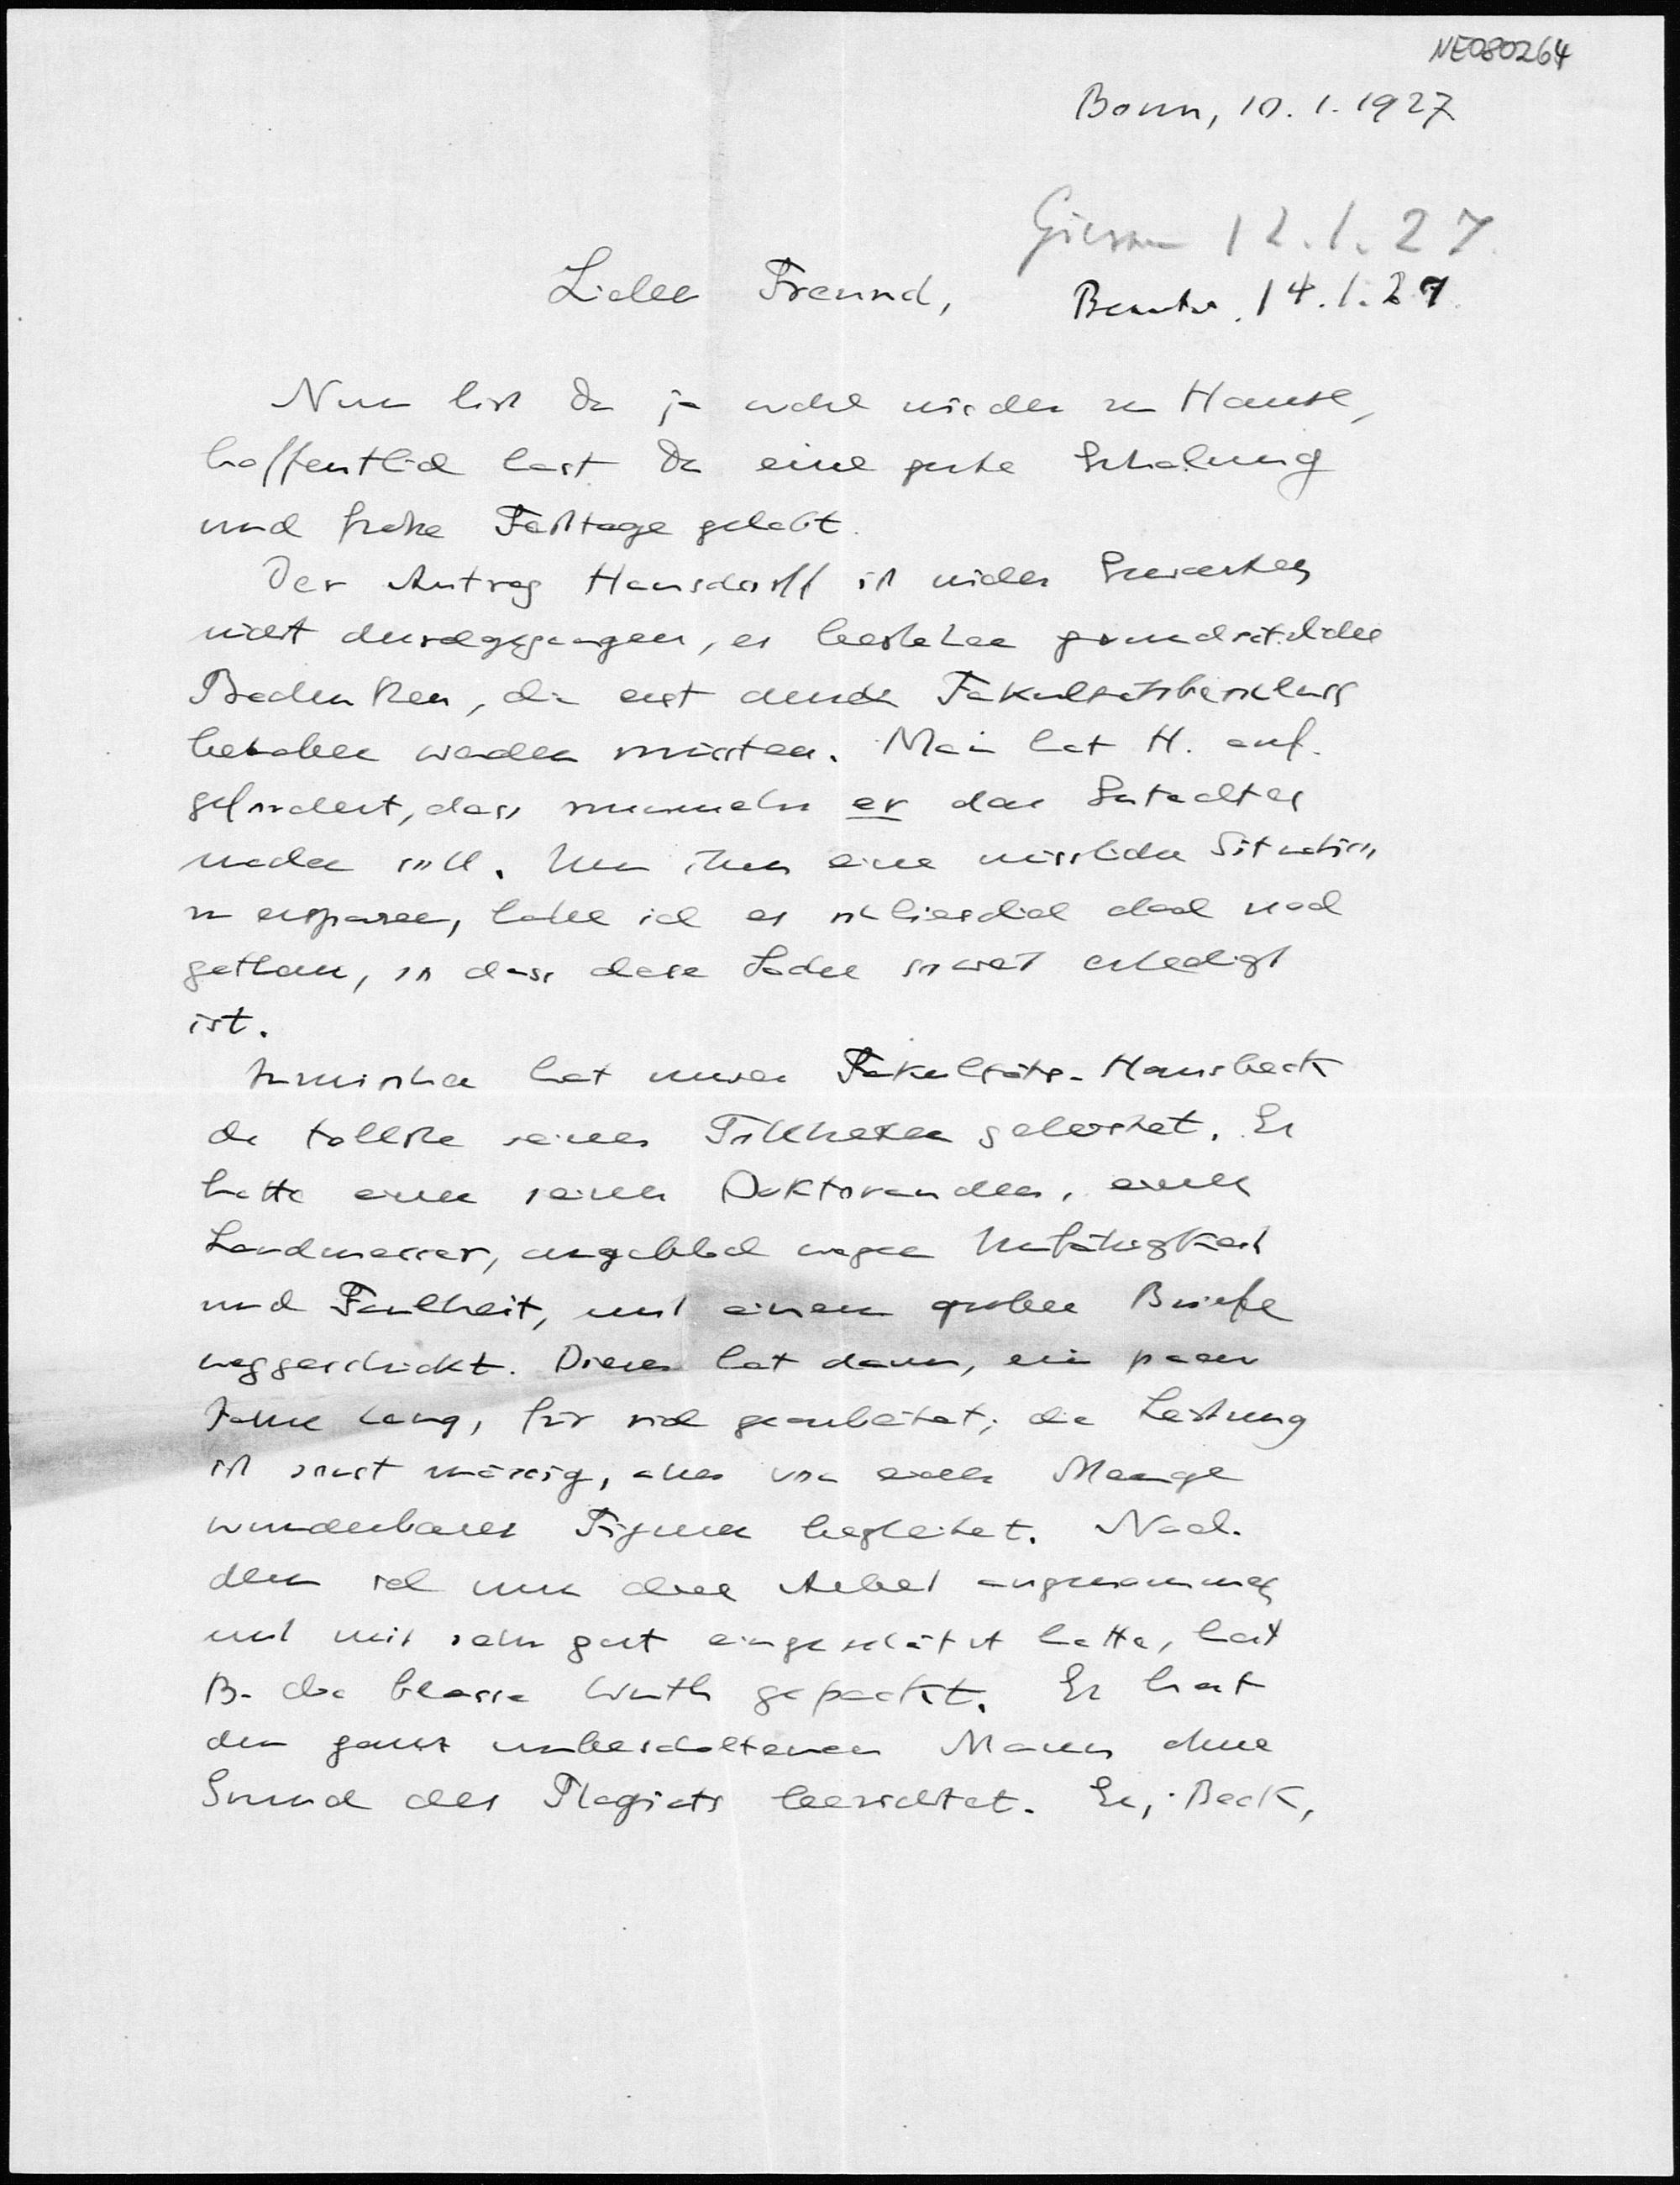 NE080264
Bonn, 10.1.1927
Giessen 12.1.27.
Beantw. 14.1.27.
Lieber Freund,
Nun bist Du ja wohl wieder zu Hause,
hoffentlich hast Du eine gute Erholung
und frohe Festtage gehabt.
Der Antrag Hausdorff ist wider Erwarten
nicht durchgegangen, es bestehen grundsätzliche
Bedenken, die erst durch Fakultätsbeschluss
behoben werden müssten. Man hat H. auf-
gefordert, dass nunmehr er das Gutachten
machen soll. Um ihm eine missliche Situation
zu ersparen, habe ich es schliesslich doch noch
gethan, so dass diese Sache soweit erledigt
ist.
Inzwischen hat unser Fakultäts-Hansbeck
die tollste seiner Tollheiten geleistet. Er
hatte einen seiner Doktoranden, einen
Landmesser, angeblich wegen Unfähigkeit
und Faulheit, mit einem groben Briefe
weggeschickt. Dieser hat dann, ein paar
Jahre lang, für sich gearbeitet; die Leistung
ist sonst mässig, aber von einer Menge
wunderbarer Figuren begleitet. Nach-
dem ich nun diese Arbeit angenommen
und mit sehr gut eingeschätzt hatte, hat
B. die blasse Wuth gepackt. Er hat
den ganz unbescholtenen Mann ohne
Grund des Plagiats bezichtet. Er, Beck,